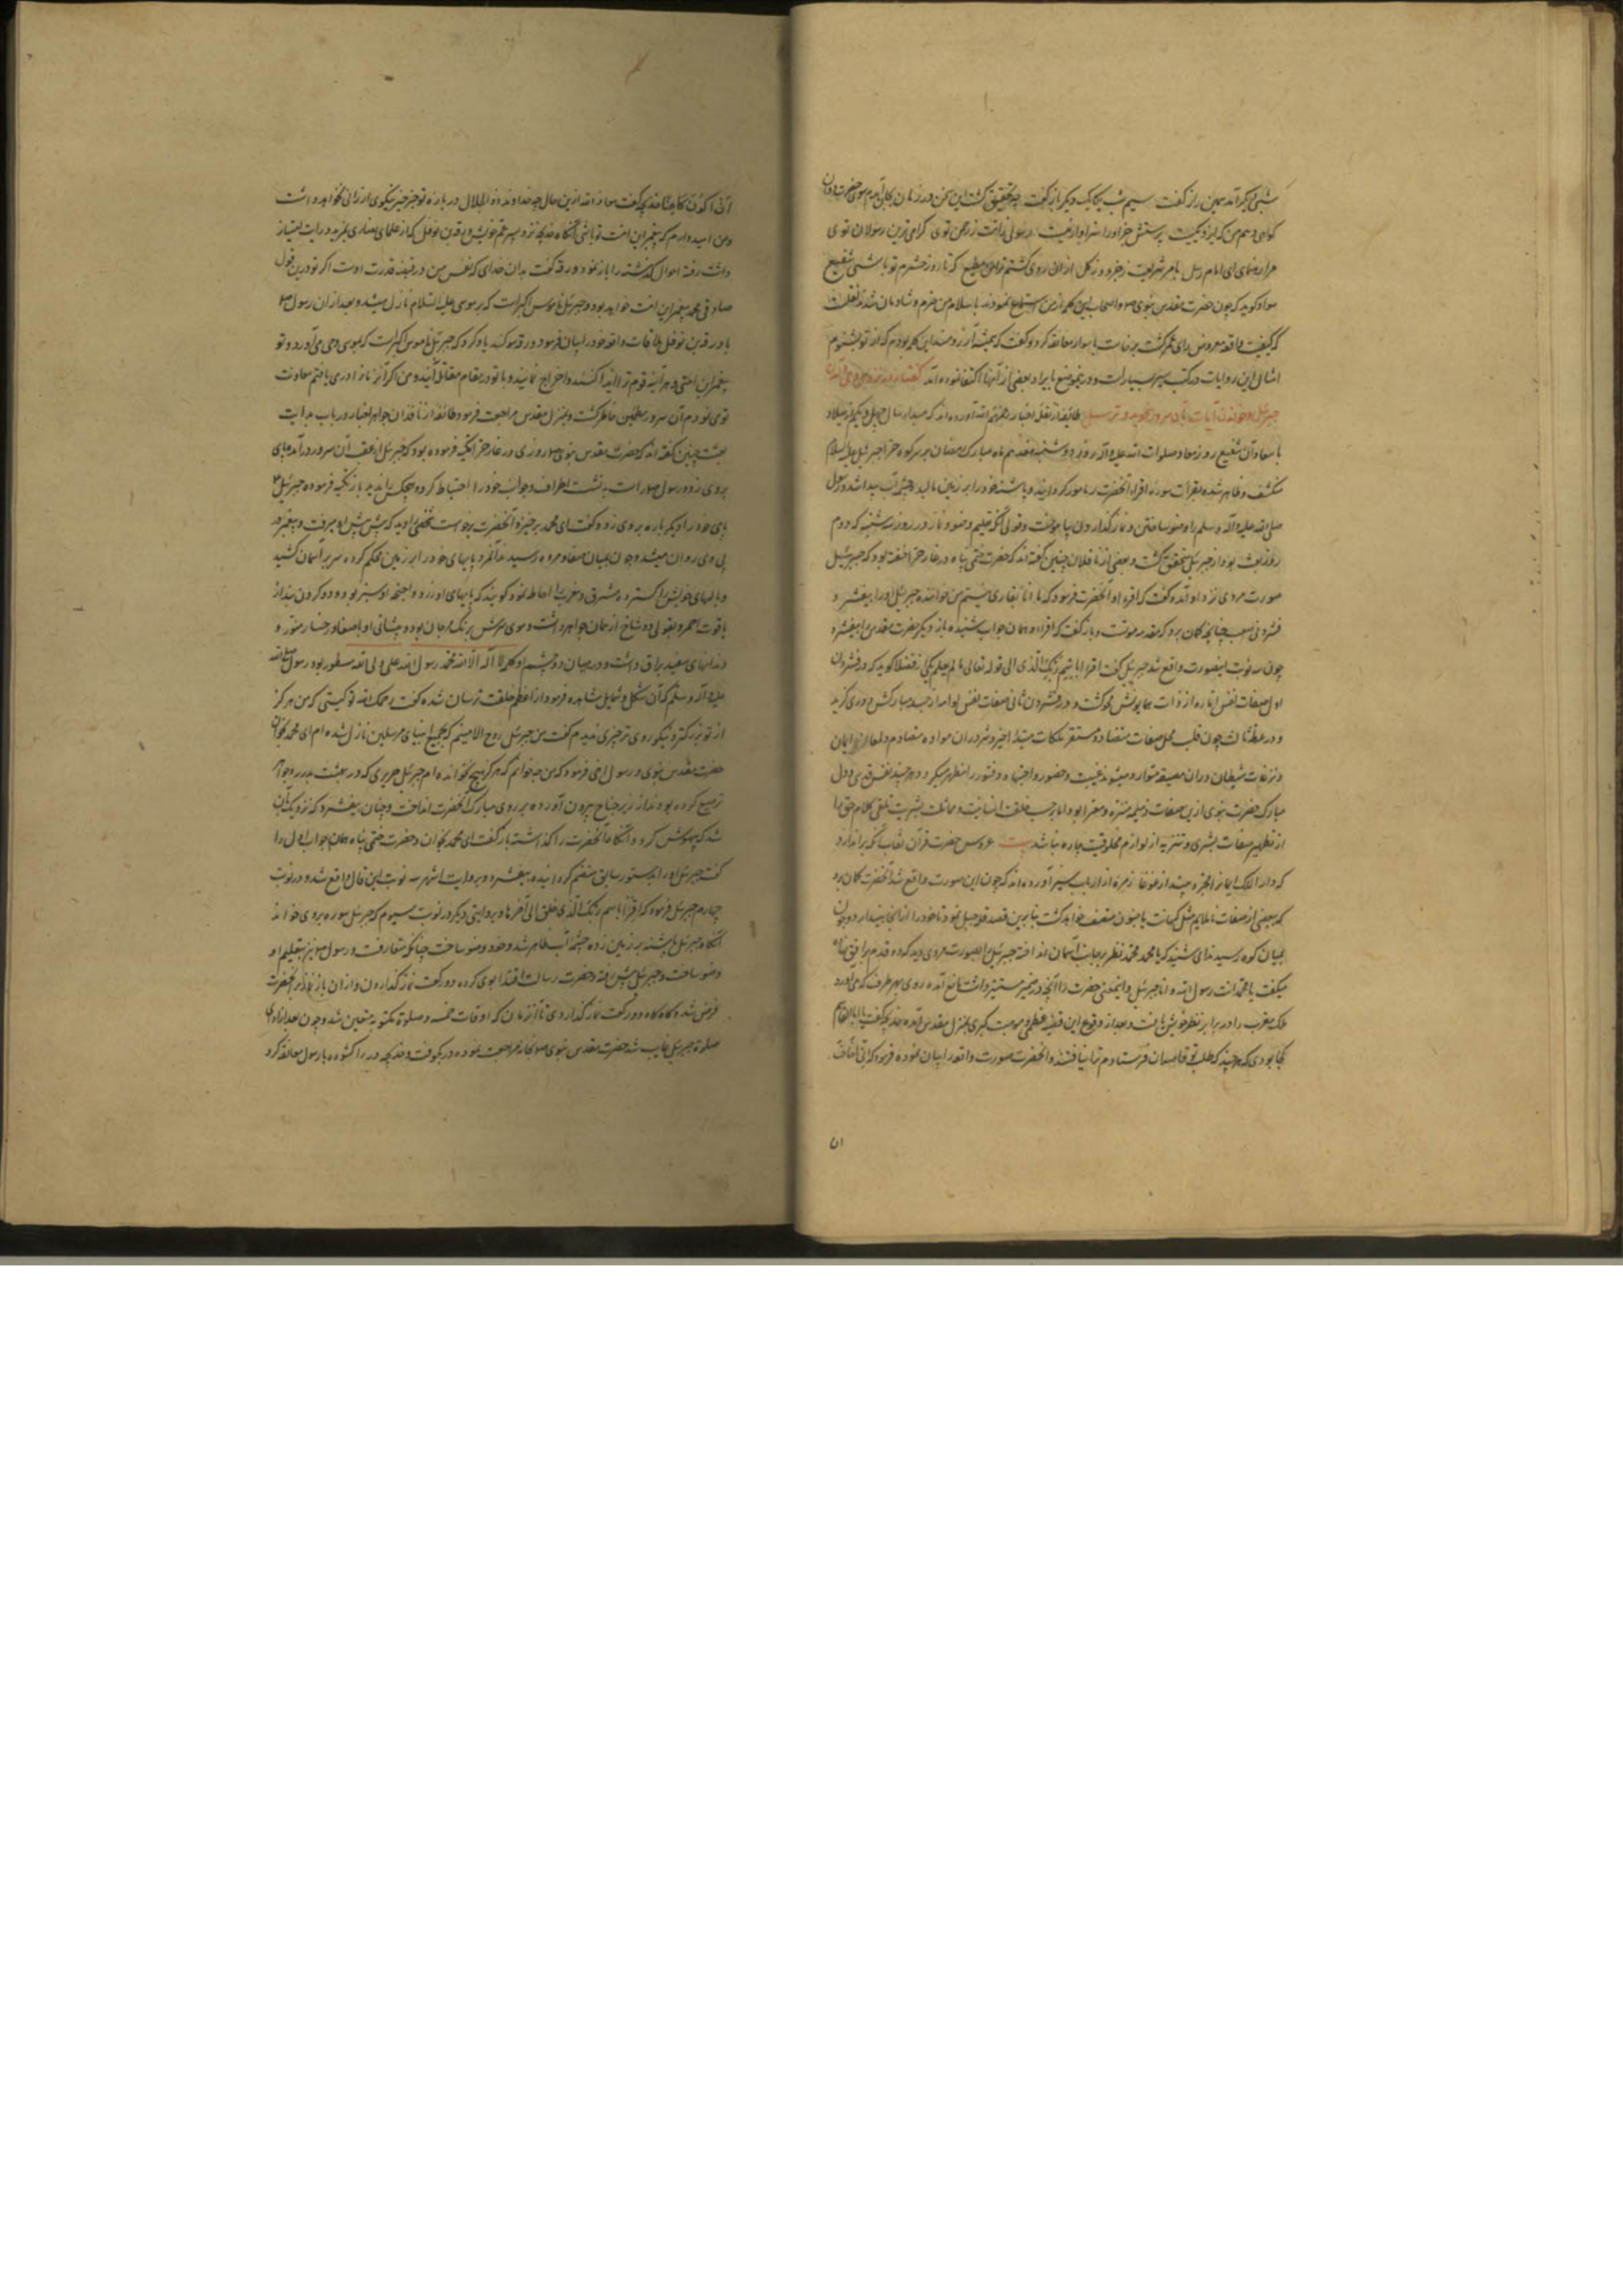 شبی دیگر آمد همین راز گفت سیم شب یکایک دیگر باز گفت چو تحقیق گشت این سخن در زمان
گواهی دهم من که ایزد یکیست پرستش جز او را سزاوار نیست رسولی ز من توی گرامی ترین رسولان توی
که تا روز حشرم تو باشی شفیع
سواد گوید که چون حضرت مقدس نبوی و اصحاب این کلمه از من استماع نمودند باسلام من خرم و شادمان شدند
که کیفیت واقعه معروض رای عمر گشت برخاست با سواد معانقه کرد و گفت که همیشه آرزومند این کلمه بودم که از تو بشنوم
امثال این روایات در کتب سیر بسیارست و در این موضع بایراد بعضی از آنها اکتفا نموده آمد گفتار در
جبرئیل و خواندن آیات
با معاد آن شفیع روز معاد صلوات الله علیه و آله روز دوشنبه هفدهم ماه مبارک رمضان بر سر کوه حرا جبرئیل علیه السلام
منکشف و ظاهر شده بقرأت سوره اقرأ آنحضرت را مامور گردانید و پاشنه خود را بر زمین مالید چشمه آب پیدا شد و رسول
صلی الله علیه و آله و سلم را وضو ساختن و نماز گذاردن بیاموخت و قولی آنکه تعلیم وضو و نماز در روز سه شنبه که دوم
روز بعثت بود از جبرئیل متحقق گشت و بعضی از ناقلان چنین گفته اند که حضرت ختمی پناه در غار حرا خفته بود که جبرئیل
صورت مردی نزد او آمده گفت که اقرأ و آنحضرت فرمود که ما انا بقاری نیستم من خواننده جبرئیل او را بیفشرد
فشردنی صعب چنانچه گمان برد که مقدمه موتست و باز گفت که اقرأ و همان جواب شنیده بار دیگر حضرت مقدس را بیفشرد
چون سه نوبت اینصورت واقع شد جبرئیل گفت اقرأ باسم ربک الذی الی قوله تعالی ما لم یعلم یکی از فضلا گوید که در فشردن
اول صفات نفس اماره از ذات همایونش محو گشت و در فشردن ثانی صفات نفس لوامه از جسد مبارکش دوری گزید
و در
مبارک حضرت نبوی ازین صفات ذمیمه منزه و معرا بود اما بر حسب خلقت انسانیت و مماثلت بشریت تلقی کلام حق را
از تطهیر صفات بشری و تنزیه از لوازم مخلوقیت چاره نباشد بیت عروس حضرت قرآن نقاب آنگه براندازد
که دار الملک ایمان را مجرد بیند از غوغا زمره از ارباب سیر آورده اند که چون این صورت واقع شد آنحضرت گمان برد
که بعضی از صفات ناملایم مثل کهانت یا جنون متصف خواهد گشت بنابرین قصد قله جبل نمود تا خود را از آنجا بیندازد و چون
بمیان کوه رسید ندای شنید که یا محمد محمد نظر بجانب آسمان انداخته جبرئیل را بصورت مردی دید که
میگفت یا محمد انت رسول الله و انا جبرئیل و اینمعنی حضرت را از آنچه در ضمیر مستنیر داشت مانع آمده روی بهر طرف که می آورد
ملک مقرب را در برابر نظر خویش یافت و بعد از وقوع این قضیه عظمی و موهبت کبری بمنزل مقدس آمده خدیجه گفت یا ابا القاسم
کجا بودی که هر چند که طلب تو قاصدان فرستادم ترا نیافتند و آنحضرت صورت واقعه را بیان نموده فرمود که انی اخاف
۵۱
ان اکون کاهنا خدیجه گفت معاذ الله ازین حال چه خداوند ذو الجلال در باره تو جز خیر و نیکوی ارزانی نخواهد داشت
و من امیدوارم که پیغمبر این امت تو باشی آنگاه خدیجه نزد پسر عم خویش ورقه بن نوفل که از علمای نصاری
رفته احوال گذشته را باز نمود ورقه گفت بدان خدای که نفس من در قبضه قدرت اوست اگر تو درین قول
صادقی محمد پیغمبر این امت خواهد بود و جبرئیل ناموس اکبر است که بر موسی علیه السلام نازل میشد و بعد از آن رسول
با ورقه بن نوفل ملاقات واقعه خود را بیان فرمود ورقه سوگند یاد کرد که جبرئیل ناموس اکبر است که بموسی وحی می آورد و تو
پیغمبر این امتی و هر آینه قوم ترا ایذا کنند و اخراج نمایند و با تو در مقام مقاتله آیند و من اگر آنروز را دریابم معاونت
تو می نمودم آن سرور مطمئن خاطر گشت و بمنزل مقدس مراجعت فرمود طائفه از ناقدان جواهر اخبار در باب بدایت
بعثت چنین گفته اند که حضرت مقدس نبوی روزی در غار حرا تکیه فرموده بود که جبرئیل از عقب آن سرور درآمده پای
بروی زد و رسول راست بنشست اطراف و جوانب خود را احتیاط کرده هیچکس را ندید باز تکیه فرموده جبرئیل
پای خود را دیگر باره بروی زد و گفت ای محمد برخیز و آنحضرت برخاست شخصی را دید که پیش پیش او میرفت و پیغمبر در
پی وی روان میشد و چون بمیان صفا و مروه رسید آنمرد پایهای خود را بر زمین محکم کرده سر بر آسمان کشید
و بالهای خویش را گسترده مشرق و مغرب را احاطه نمود گویند که پایهای او زرد و اجنحه او سبز بود و دو گردن بند از
یاقوت احمر و بقولی دو شاخ از همان جواهر داشت و موی سرش برنگ مرجان بود و پیشانی او با صفا و رخسار منور و
دندانهای سفید براق داشت و در میان دو چشم او کلمه لا اله الا الله محمد رسول الله علی ولی الله مسطور بود رسول صلی الله
علیه و آله و سلم که آن شکل و شمایل مشاهده فرمود از اعظم خلقت ترسان شده گفت رحمک الله تو کیستی که من هرگز
از تو بزرگتر و نیکو روی تر چیزی ندیدم گفت من جبرئیل روح الامینم که بجمیع انبیای مرسلین نازل شده ام ای محمد بخوان
حضرت مقدس نبوی و رسول امی فرمود که من چه خوانم که هرگز هیچ نخوانده ام جبرئیل حریری که در بهشت بدر و جواهر
ترصیع کرده بودند از زیر جناح بیرون آورده بر روی مبارک آنحضرت انداخت و چنان بیفشرد که نزدیک بآن
شد که بیهوش گردد آنگاه آنحضرت را گذاشته باز گفت ای محمد بخوان و حضرت ختمی پناه همان جواب اول داد
گفت جبرئیل او را بدستور سابق منضم گردانیده بیفشرد و بروایت اشهر سه نوبت این حال واقع شد و در نوبت
چهارم جبرئیل فرمود که اقرأ باسم ربک الذی خلق الی آخرها و بروایتی دیگر در نوبت سیوم که جبرئیل سوره بروی خواند
آنگاه جبرئیل پاشنه بر زمین زده چشمه آب ظاهر شد و خود وضو ساخت چنانکه متعارفست و رسول نیز بتعلیم او
وضو ساخت و جبرئیل پیش رفته و حضرت رسالت اقتدا بوی کرده دو رکعت نماز گذاردند و از آن باز نماز بر آنحضرت
فرض شد و گاه گاه دو رکعت نماز گذاردی تا آنزمان که اوقات خمسه و صلوة مکتوبه متعین شد و چون بعد از ادای
صلوة جبرئیل غایب شد حضرت مقدس نبوی بخانه مراجعت نموده در بکوفت و خدیجه در را گشوده با رسول معانقه کرد